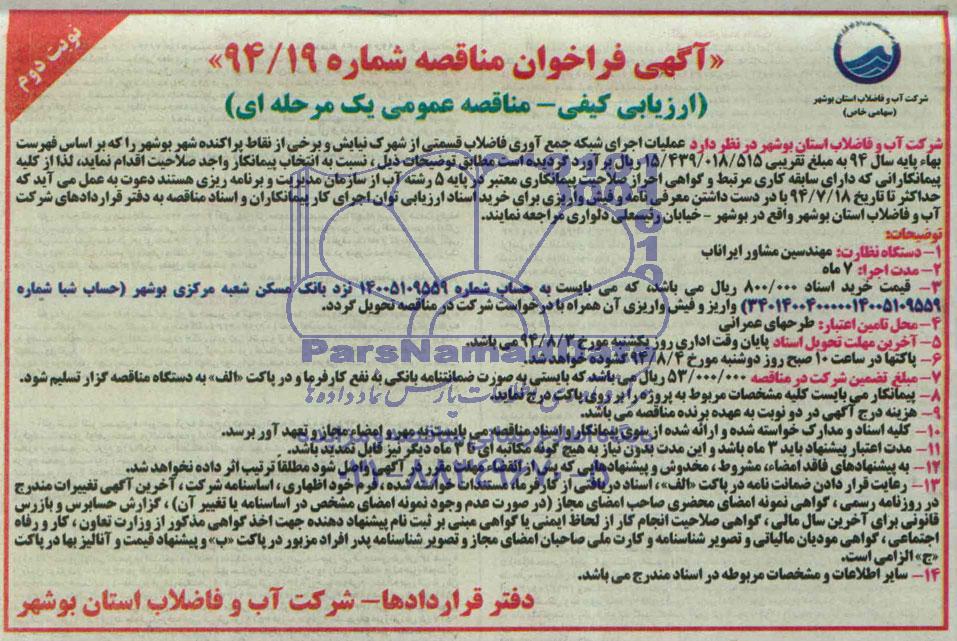 نوبت دوم
«آگهی فراخوان مناقصه شماره ۹۴/۱۹»
(ارزیابی کیفی- مناقصه عمومی یک مرحله ای)
شرکت آب و فاضلاب استان بوشهر
(سهامی خاص)
شرکت آب و فاضلاب استان بوشهر در نظر دارد عملیات اجرای شبکه جمع آوری فاضلاب قسمتی از شهرک نیایش و برخی از نقاط پراکنده شهر بوشهر را که بر اساس فهرست
بهاء پایه سال ۹۴ به مبلغ تقریبی ۱۵/۴۳۹/۰۱۸/۵۱۵ ریال برآورد گردیده است مطابق توضیحات ذیل ، نسبت به انتخاب پیمانکار واجد صلاحیت اقدام نماید، لذا از کلیه
پیمانکارانی که دارای سابقه کاری مرتبط و گواهی احراز صلاحیت پیمانکاری معتبر در پایه ۵ رشته آب از سازمان مدیریت و برنامه ریزی هستند دعوت به عمل می آید که
حداکثر تا تاریخ ۹۴/۷/۱۸ با در دست داشتن معرفی نامه و فیش واریزی برای خرید اسناد ارزیابی توان اجرای کار پیمانکاران و اسناد مناقصه به دفتر قراردادهای شرکت
آب و فاضلاب استان بوشهر واقع در بوشهر - خیابان رئیسعلی دلواری مراجعه نمایند.
توضیحات:
۱- دستگاه نظارت: مهندسین مشاور ایراناب
۲- مدت اجرا: ۷ ماه
۳- قیمت خرید اسناد ۸۰۰/۰۰۰ ریال می باشد، که می بایست به حساب شماره ۱۴۰۰۵۱۰۹۵۵۹ نزد بانک مسکن شعبه مرکزی بوشهر (حساب شبا شماره
۳۴۰۱۴۰۰۴۰۰۰۰۰۱۴۰۰۵۱۰۹۵۵۹) واریز و فیش واریزی آن همراه با درخواست شرکت در مناقصه تحویل گردد.
۴- محل تامین اعتبار: طرحهای عمرانی
۵- آخرین مهلت تحویل اسناد پایان وقت اداری روز یکشنبه مورخ ۹۴/۸/۳ می باشد.
۶- پاکتها در ساعت ۱۰ صبح روز دوشنبه مورخ ۹۴/۸/۴ گشوده خواهد شد.
۷- مبلغ تضمین شرکت در مناقصه ۵۳/۰۰۰/۰۰۰ ریال می باشد که بایستی به صورت ضمانتنامه بانکی به نفع کارفرما و در پاکت «الف» به دستگاه مناقصه گزار تسلیم شود.
۸- پیمانکار می بایست کلیه مشخصات مربوط به پروژه را بر روی پاکت درج نماید.
۹- هزینه درج آگهی در دو نوبت به عهده برنده مناقصه می باشد.
۱۰- کلیه اسناد و مدارک خواسته شده و ارائه شده از طرف پیمانکار در اسناد مناقصه می بایست به مهر و امضاء مجاز و تعهد آور برسد.
۱۱- مدت اعتبار پیشنهاد باید ۳ ماه باشد و این مدت بدون نیاز به هیچ گونه مکاتبه ای تا ۳ ماه دیگر نیز قابل تمدید باشد.
۱۲- به پیشنهادهای فاقد امضاء، مشروط ، مخدوش و پیشنهادهایی که پس از انقضاء مهلت مقرر در آگهی واصل شود مطلقاً ترتیب اثر داده نخواهد شد.
۱۳- رعایت قرار دادن ضمانت نامه در پاکت «الف»، اسناد دریافتی از کارفرما، مستندات خواسته شده ، فرم خود اظهاری ، اساسنامه شرکت ، آخرین آگهی تغییرات مندرج
در روزنامه رسمی ، گواهی نمونه امضای محضری صاحب امضای مجاز (در صورت عدم وجود نمونه امضای مشخص در اساسنامه یا تغییر آن) ، گزارش حسابرس و بازرس
قانونی برای آخرین سال مالی ، گواهی صلاحیت انجام کار از لحاظ ایمنی یا گواهی مبنی بر ثبت نام پیشنهاد دهنده جهت اخذ گواهی مذکور از وزارت تعاون ، کار و رفاه
اجتماعی ، گواهی مودیان مالیاتی و تصویر شناسنامه و کارت ملی صاحبان امضای مجاز و تصویر شناسنامه پدر افراد مزبور در پاکت «ب» و پیشنهاد قیمت و آنالیز بها در پاکت
«ج» الزامی است.
۱۴- سایر اطلاعات و مشخصات مربوطه در اسناد مندرج می باشد.
دفتر قراردادها- شرکت آب و فاضلاب استان بوشهر
ParsNamadData
پایگاه اطلاع رسانی مناقصه و مزایده